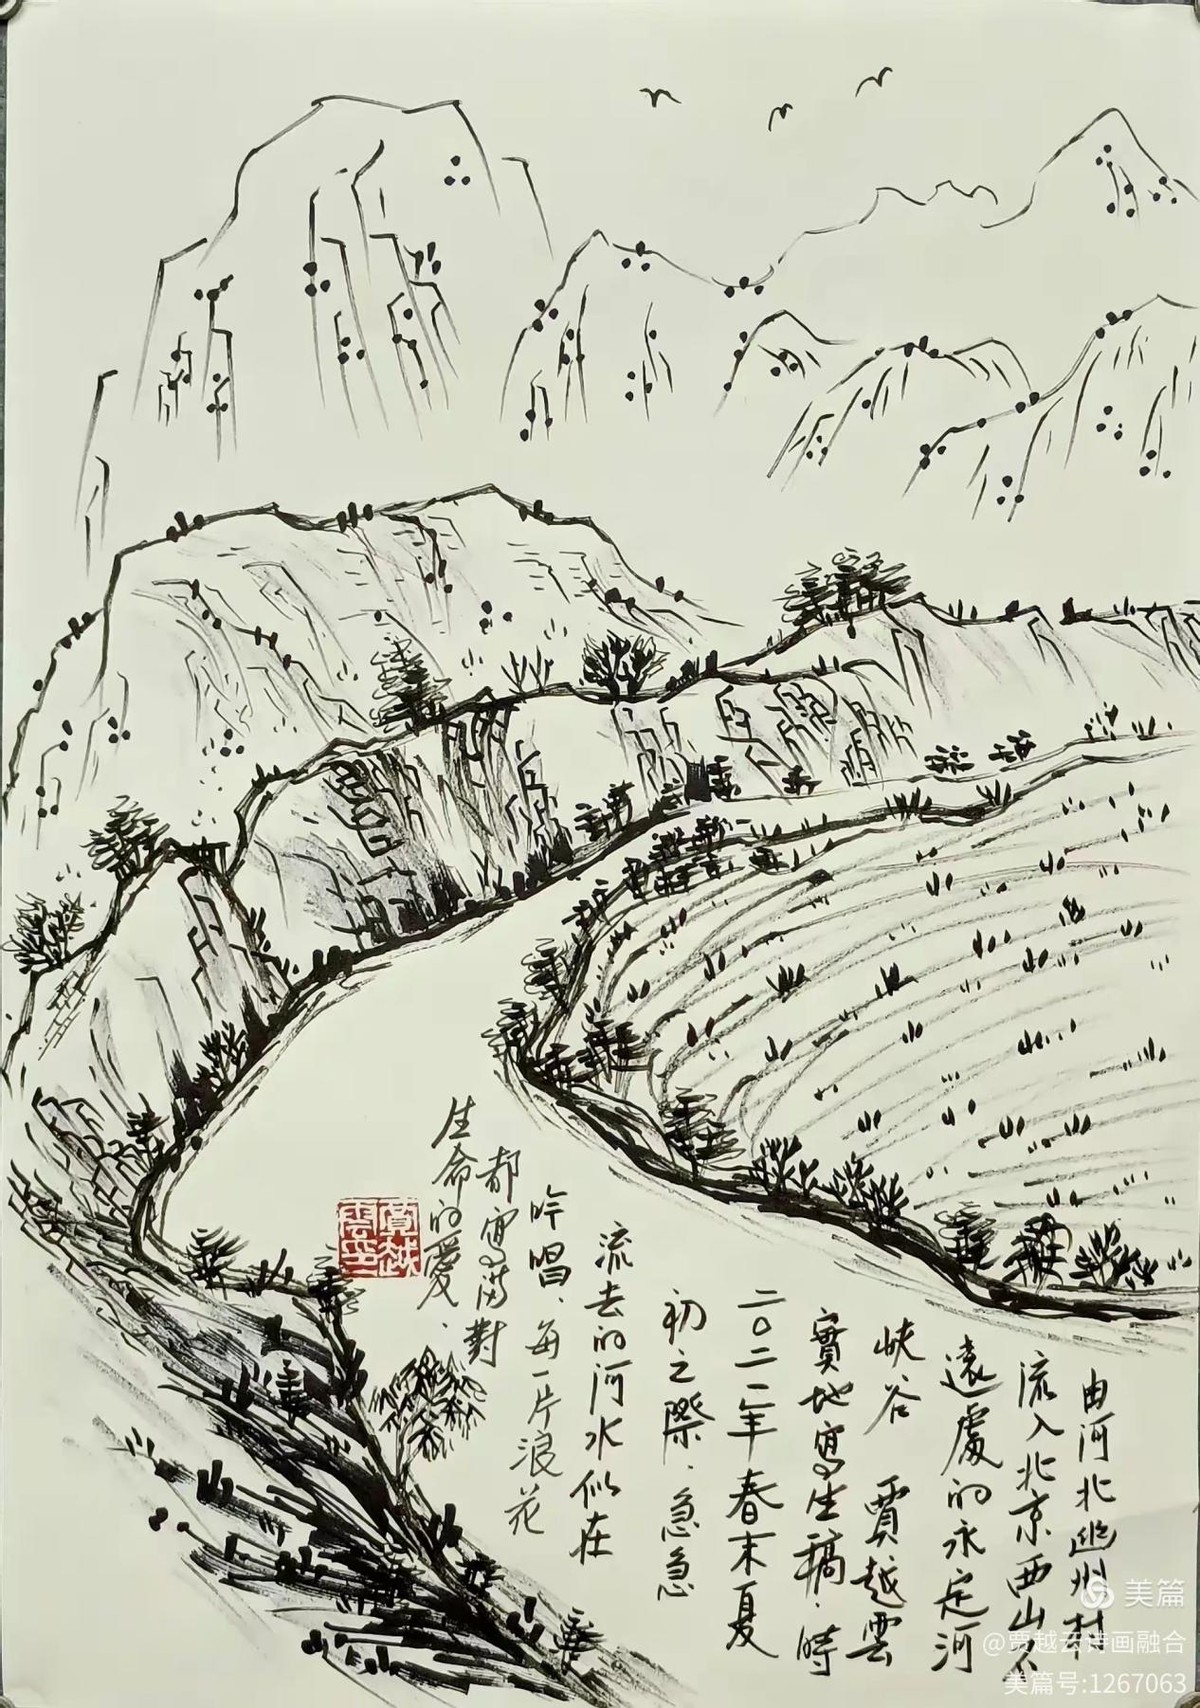 由河北幽州村
流入北京西山不
遠處的永定河
峽谷 賈越雲
實地寫生稿.時
二〇二一年春末夏
初之際.急急
流去的河水似在
吟唱.每一片浪花
都寫滿對
生命的愛.
賈越
雲印
美篇
@贾越云诗画融合
美篇号:1267063